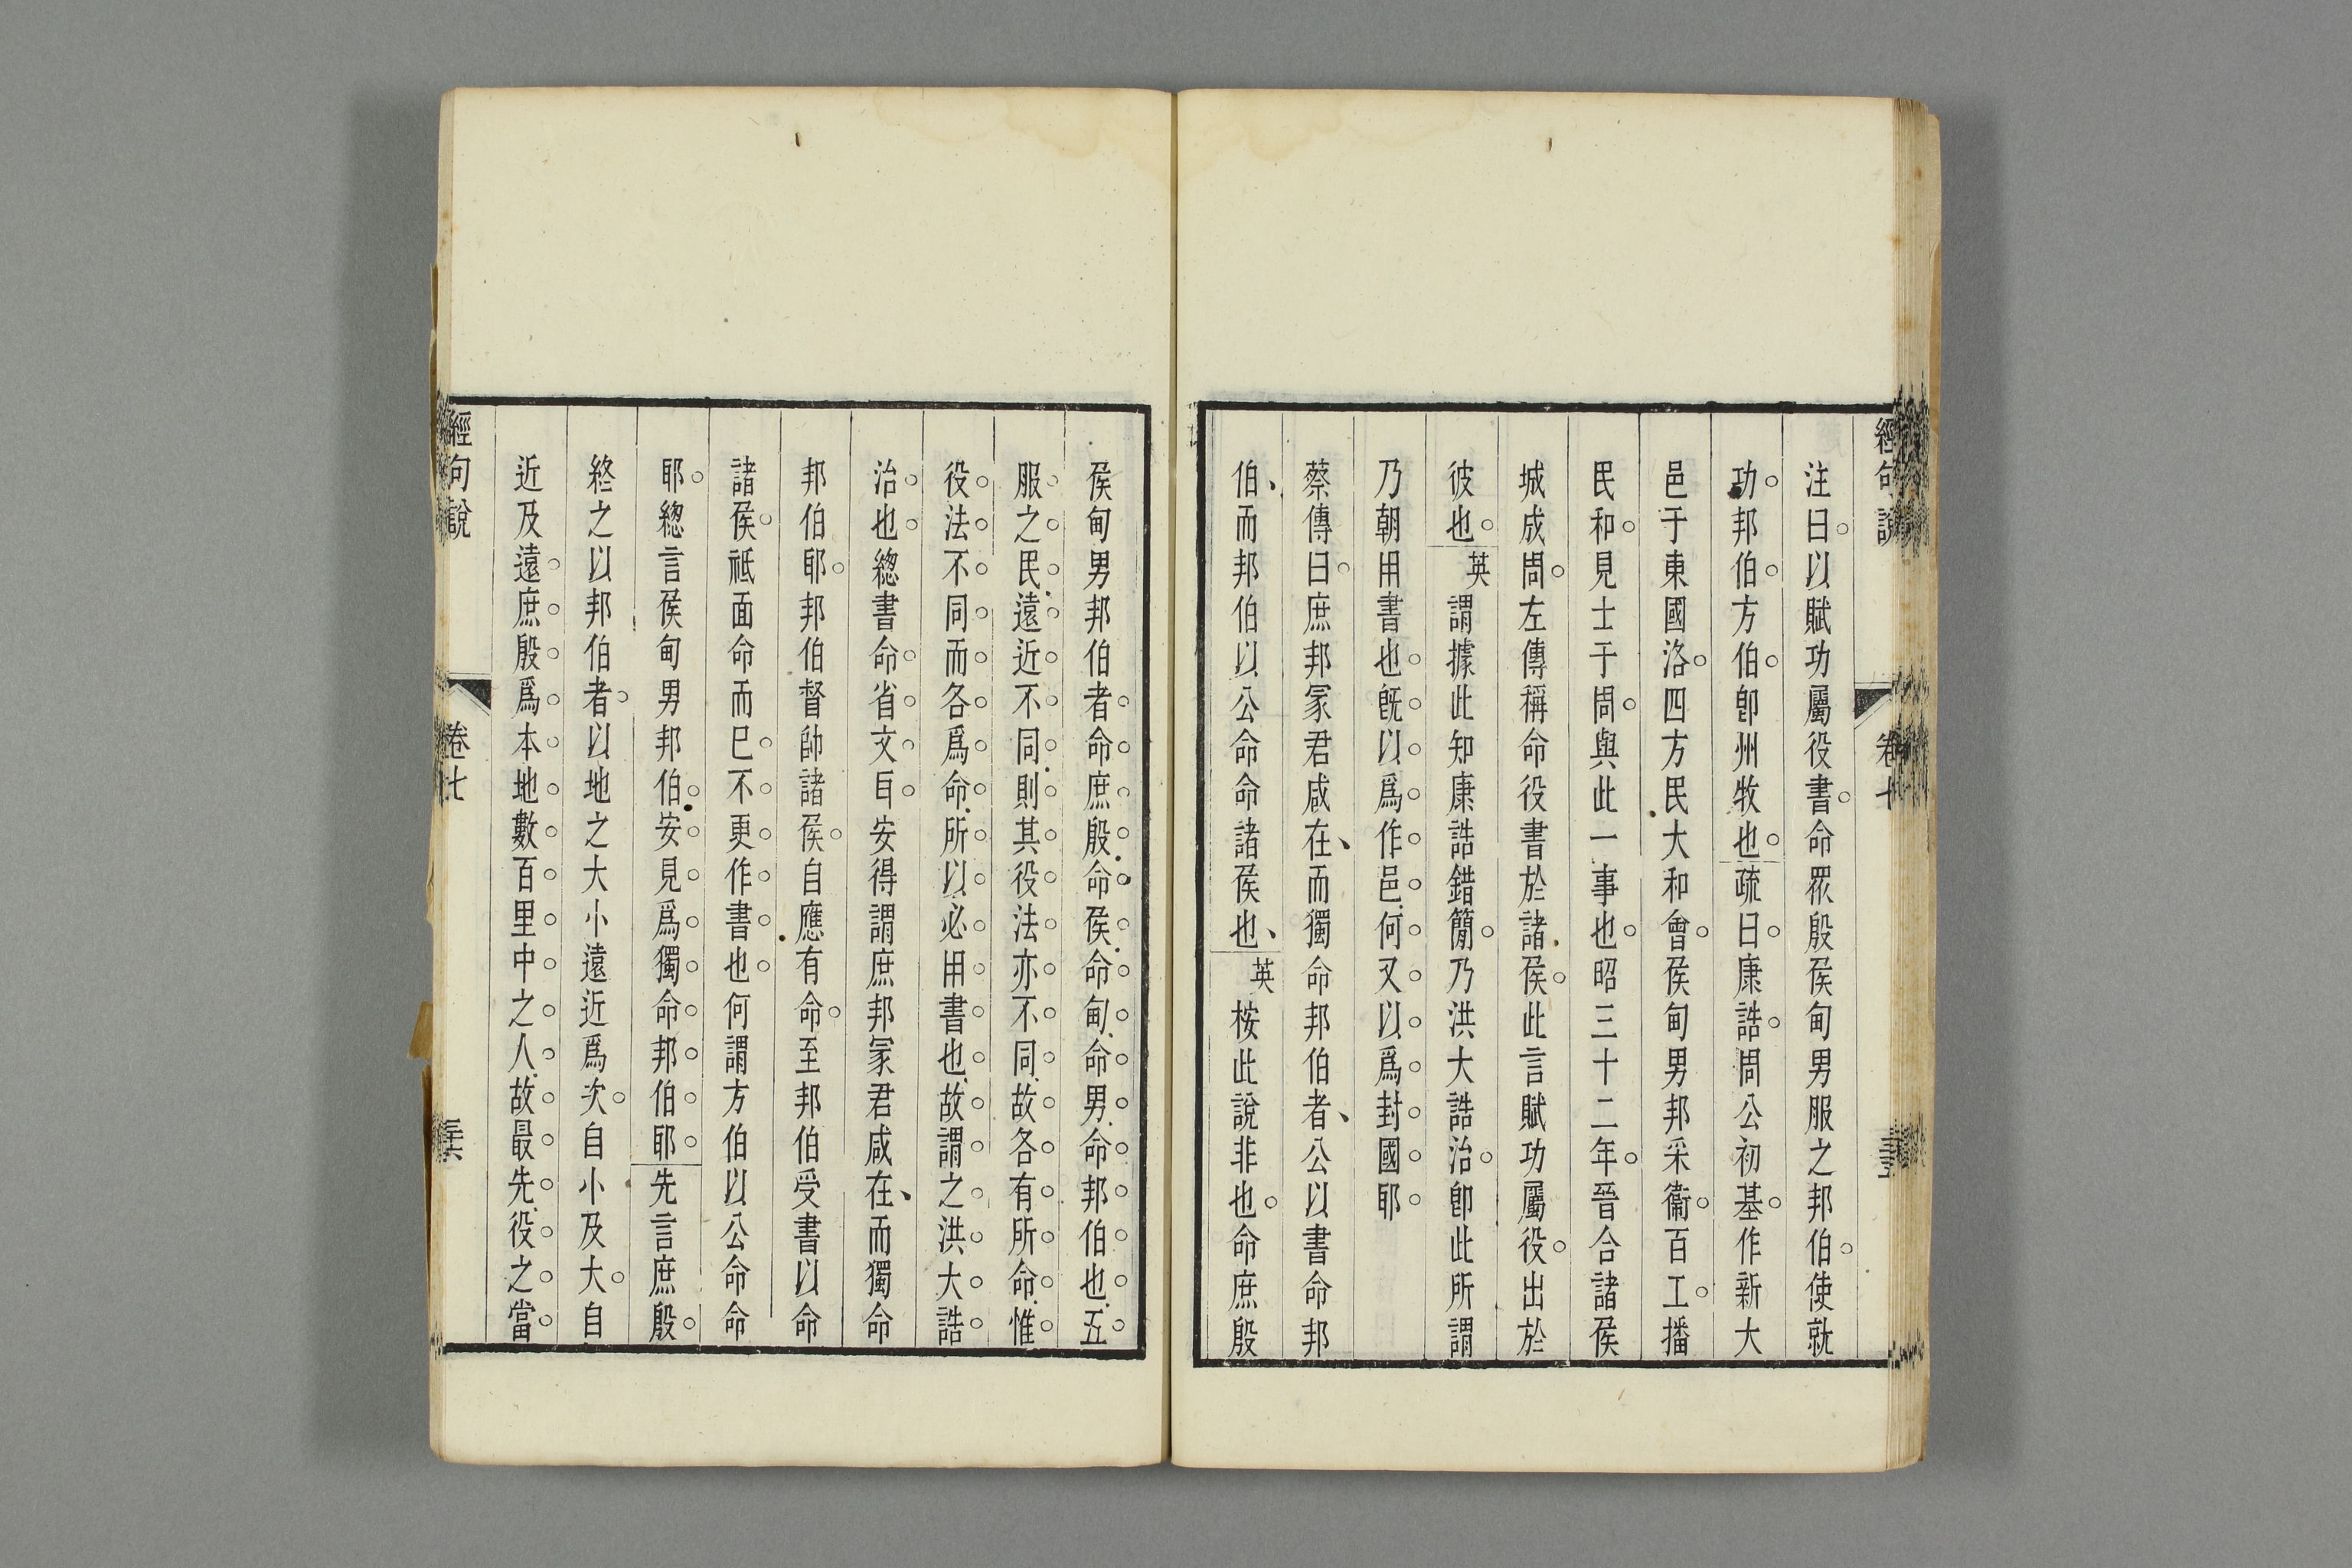 經句說
卷七
注曰以賦功屬役書命眾殷侯甸男服之邦伯使就
功邦伯方伯卽州牧也疏曰康誥周公初基作新大
邑于東國洛四方民大和會侯甸男邦采衞百工播
民和見士于周與此一事也昭三十二年晉合諸侯
城成周左傳稱命役書於諸侯此言賦功屬役出於
彼也英謂據此知康誥錯簡乃洪大誥治卽此所謂
乃朝用書也旣以爲作邑何又以爲封國耶
蔡傳曰庶邦冢君咸在而獨命邦伯者公以書命邦
伯而邦伯以公命命諸侯也英桉此說非也命庶殷
侯甸男邦伯者命庶殷命侯命甸命男命邦伯也五
服之民遠近不同則其役法亦不同故各有所命惟
役法不同而各爲命所以必用書也故謂之洪大誥
治也總書命省文耳安得謂庶邦冢君咸在而獨命
邦伯耶邦伯督帥諸侯自應有命至邦伯受書以命
諸侯祗面命而已不更作書也何謂方伯以公命命
耶總言侯甸男邦伯安見爲獨命邦伯耶先言庶殷
終之以邦伯者以地之大小遠近爲次自小及大自
近及遠庶殷爲本地數百里中之人故最先役之當
經句說
卷七
三六